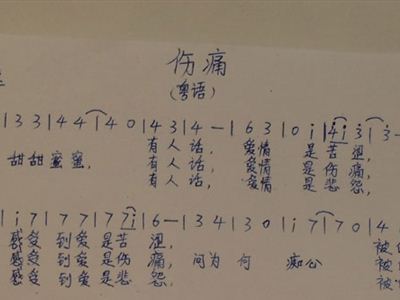 伤痛
(粤语)
|3 3|4 4|4 0|4 3|4 —|6 3|0 i|4 i 3|3
甜甜蜜蜜, 有人话, 爱情 是苦涩,
有人话, 爱情 是伤痛,
有人话, 爱情 是悲怨,
|i 7|7 7|7 7 i|6 —|3 4|3 0|i 7|7 0|4
感受 到爱 是苦 涩, 被
感受 到爱 是伤 痛, 问为 何 痴心 被
感受 到爱 是悲 怨, 被